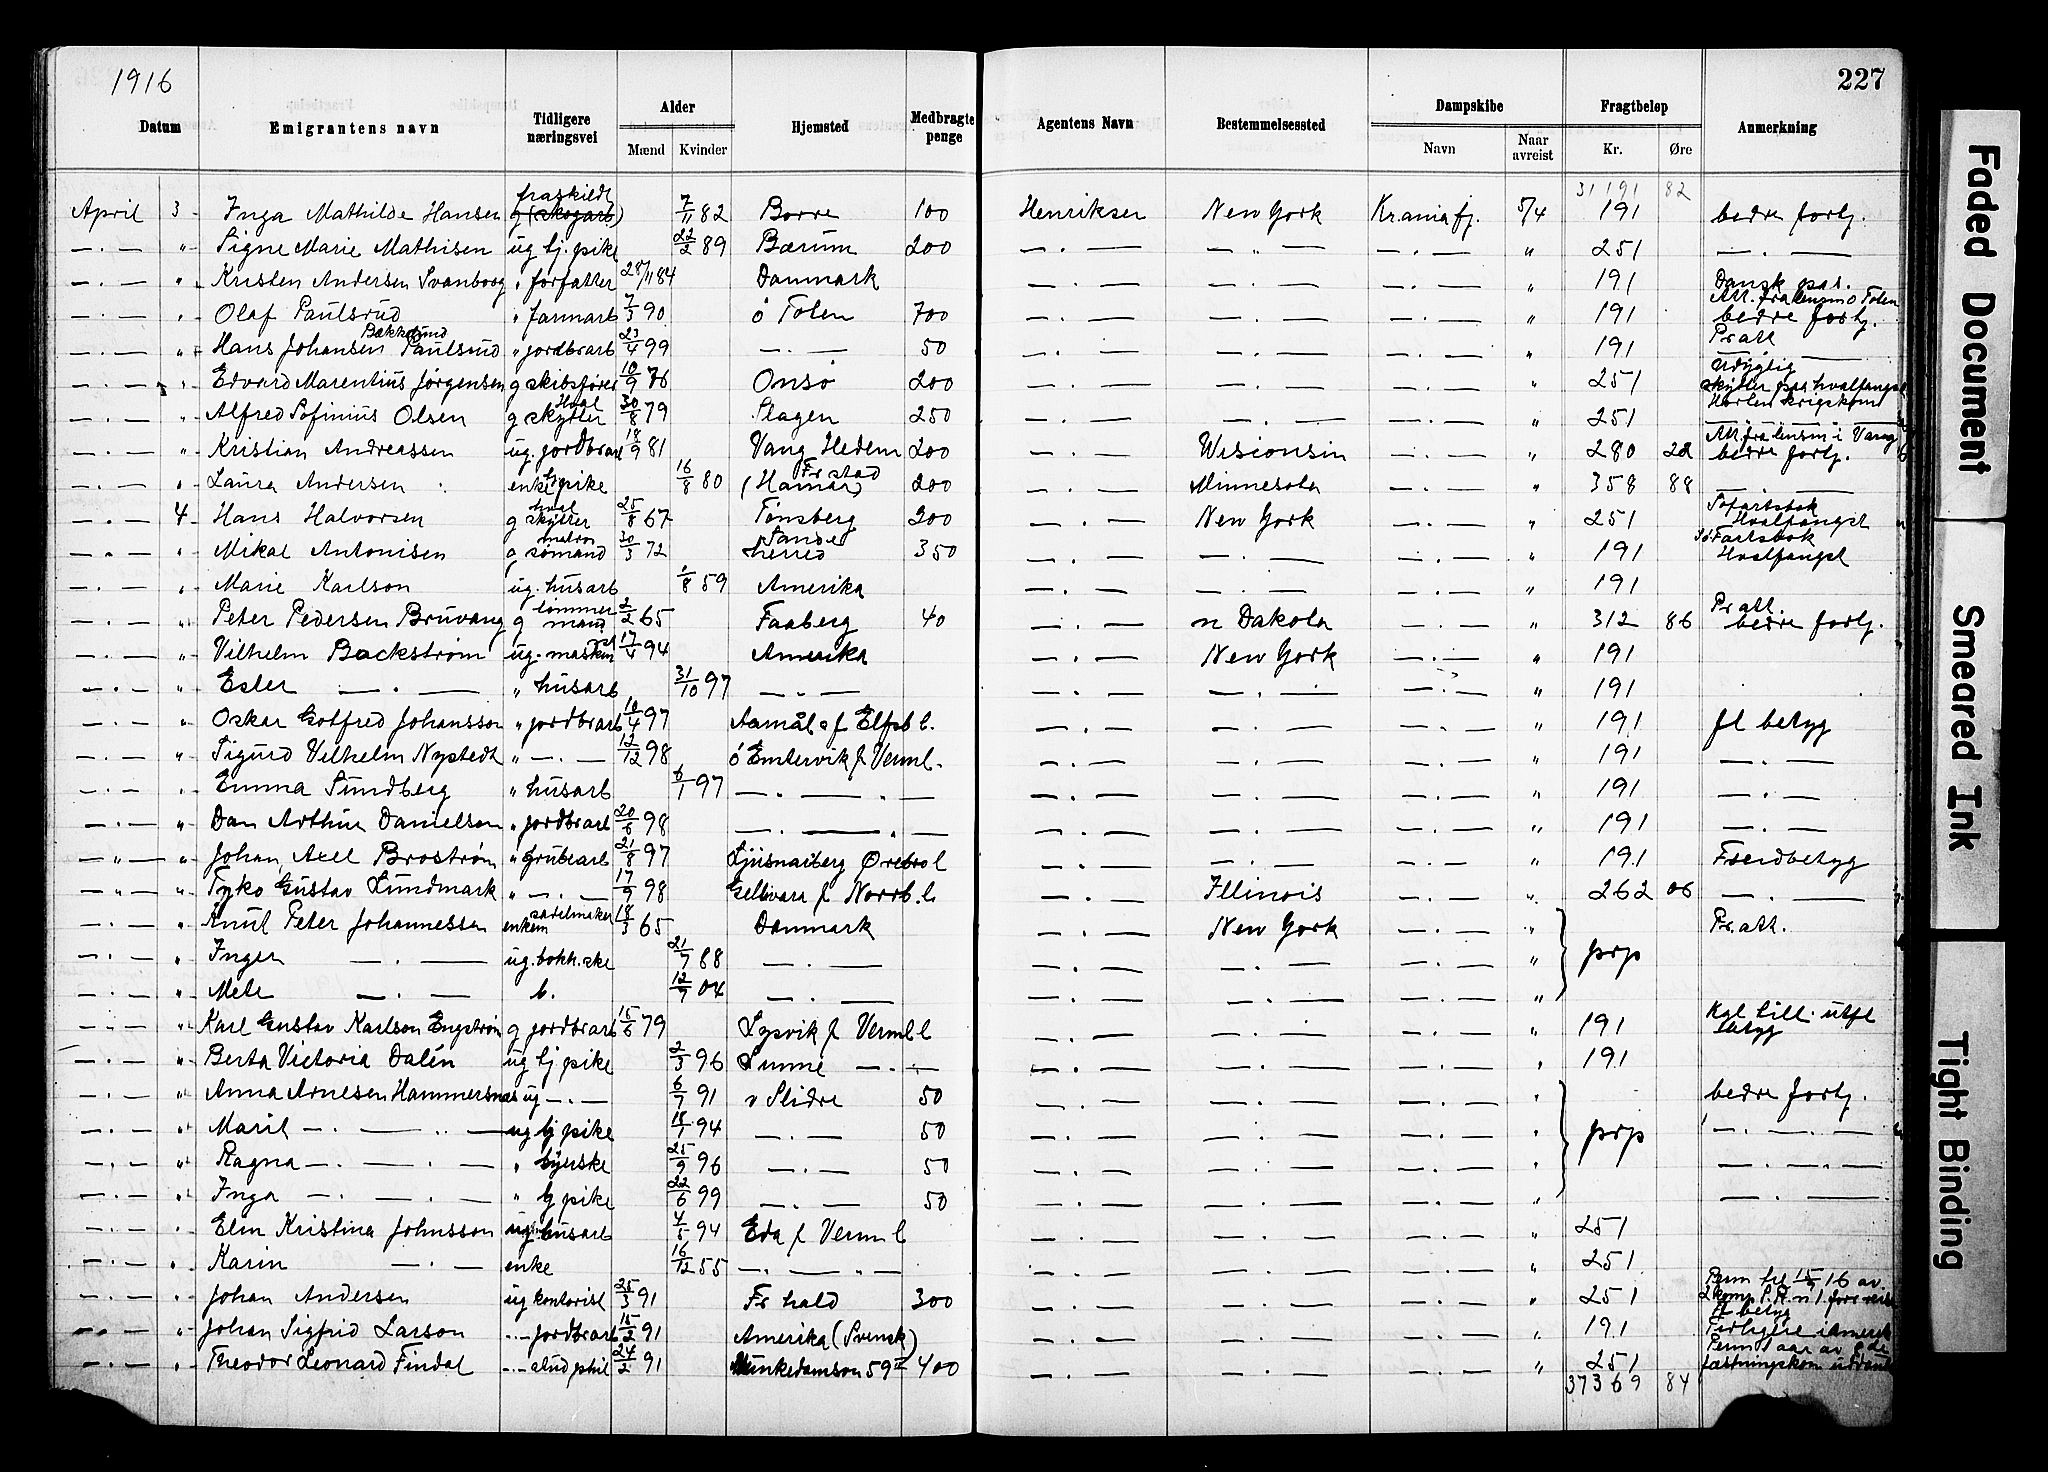 1916
227
Datum Emigrantens navn Tidligere næringsvei Alder Mænd Kvinder Hjemsted Medbragte penge Agentens Navn Bestemmelsessted Dampskibe Navn Naar avreist Fragtbeløp Kr. Øre Anmerkning
31 191 82
April 3 Inga Mathilde Hansen fraskildt g (skogarb) 7/11 82 Borre 100 Henriksen New York Kraniafj. 5/4 191 bedre fortj.
— . — " Signe Marie Mathisen ug tj. pike 22/2 89 Bærum 200 — . — — " — — . — " 251 — . —
— . — " Kristen Andersen Svanborg " forfatter 28/11 84 Danmark — . — — . — — . — " 191 Dansk pas.
— . — " Olaf Paulsrud " farmarb 7/3 90 ö Toten 700 — . — — . — — . — " 191 Att. fra lensm ö Toten bedre fortj.
— . — " Hans Johansen Bækkelund Paulsrud " jordbrarb 23/4 99 — . — 50 — . — — . — — . — " 191 Pr att
— . — " Edvard Marentius Jørgensen g skibsfører 10/9 76 Onsø 200 — . — — . — — . — " 251 Udygtig
— . — " Alfred Sofinius Olsen g Hval skytter 30/8 79 Slagen 250 — . — — . — — . — " 251 skytter paa hvalfangst
— . — " Kristian Andreassen ug. jordbrarb 18/9 81 Vang Hedem 200 — . — Wisconsin — . — " 280 22 Att. fra lensm i Vang bedre fortj.
— . — " Laura Andersen enke tj pike 16/8 80 Fr stad (Hamar) 200 — . — Minnesota — . — " 358 88 — . —
— . — 4 Hans Halvorsen g hval skytter 25/8 67 Tønsberg 200 — . — New York — . — " 251 Søfartsbok Hvalfangst
— . — " Mikal Antonisen g matros sømand 30/3 72 Sandeherred 350 — . — — . — — . — " 191 Søfartsbok Hvalfangst
— . — " Marie Karlson ug. husarb 1/8 59 Amerika — . — — . — — . — " 191
— . — " Peter Pedersen Bruvang g tømmermand 2/2 65 Faaberg 40 — . — n Dakota — . — " 312 86 Pr att. bedre fortj.
— . — " Vilhelm Backstrøm ug. maskinist 17/4 94 Amerika — . — New York — . — " 191
— . — " Ester — . — " husarb 31/10 97 — . — — . — — . — — . — " 191
— . — " Oskar Gotfred Johansson " jordbrarb 10/4 97 Aamål s f Elfsb l. — . — — . — — . — " 191 fl betyg
— . — " Sigurd Vilhelm Nystedt " — . — 12/12 98 ö Emtervik f Verml. — . — — . — — . — " 191 — . —
— . — " Emma Sundberg " husarb 6/1 97 — . — . — — . — — . — — . — " 191 — . —
— . — " Dan Arthur Danielson " jordbrarb 20/6 98 — . — . — — . — — . — — . — " 191 — . —
— " — " Johan Axel Broström " grubearb 21/8 97 Ljusnarberg Örebro l — . — — . — — . — " 191 Freidbetyg
— " — " Tyko Gustav Lundmark " — . — 17/9 98 Gellivara f Norrb. l — . — Illinois — . — " 262 06 — . —
— . — " Knut Peter Johannessen enkem sadelmaker 18/3 65 Danmark — . — New York — . — " prp Pr. att.
— . — " Inger — . — ug. bokh.ske 21/7 88 — . — — . — — . — — . — "
— . — " Mete — . — b. 12/7 04 — . — — . — — . — — . — "
— . — " Karl Gustav Karlson Engstrøm g jordbrarb 15/6 79 Lysvik f Verml l — . — — . — — . — " 191 Kgl till. utfl betyg
— . — " Berta Victoria Dalén ug tj pike 2/3 96 Sunne — . — — . — — . — — . — " 191
— . — " Anna Arnesen Hammersnæs ug — . — 6/7 91 v Slidre 50 — . — — . — — . — " prp bedre fortj.
— . — " Marit — . — . — ug tj pike 18/1 94 — . — 50 — . — — . — — . — " — . — . —
— . — " Ragna — . — . — " syerske 25/9 96 — . — 50 — . — — . — — . — " — . — . —
— . — " Inga — . — . — " tj pike 22/6 99 — . — 50 — . — — . — — . — " — . — . —
— . — " Elin Kristina Johnsson ug husarb 4/5 94 Eda f Verml — . — — . — — . — " 251
— . — " Karin — . — enke 16/12 55 — . — " — — . — — . — — . — " 251
— . — " Johan Andersen ug kontorist 25/3 91 Fr hald 300 — . — — . — — . — " 251 Perm til 15/9 16 av 2 komp I.R. n 1. forr reise
— . — " Johan Sigfrid Larson — . — jordbrarb 15/2 91 Amerika (Svensk) — . — — . — — . — " 191 fl betyg Tidligere i Amerik
— . — " Theodor Leonard Findal — . — stud phil 24/2 91 Munkedamsvn 59 II 400 — . — — . — — . — " 251 Perm 1 aar av
37369 84
Faded Document
Smeared Ink
Tight Binding